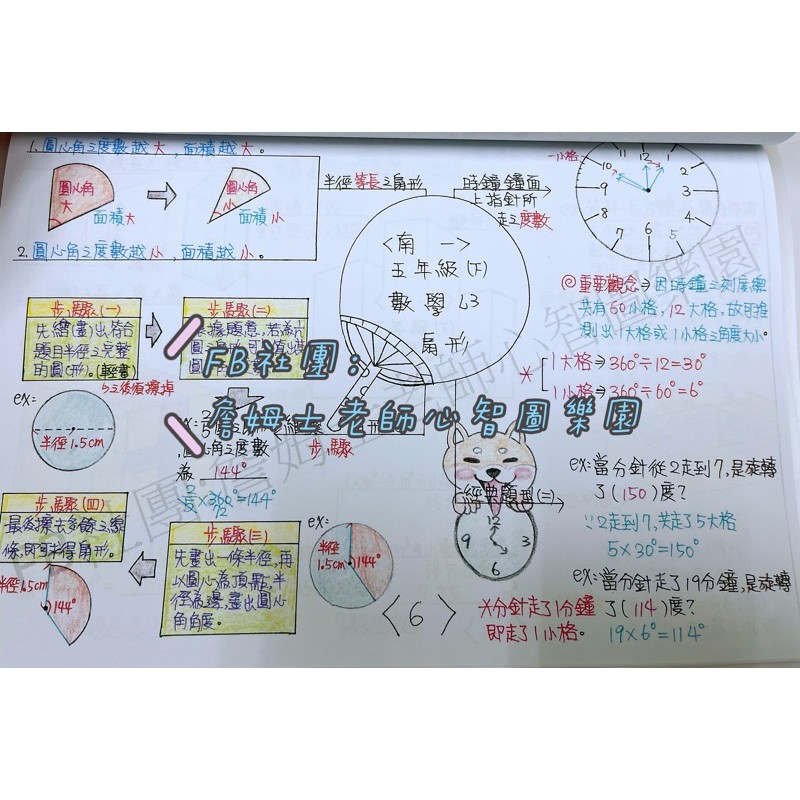 1.圓心角之度數越大,面積越大。
圓心角
大
面積大
圓心角
小
面積小
2.圓心角之度數越小,面積越小。
半徑等長之扇形
時鐘鐘面
上指針所
走之度數
一小格
10
11
12
1
2
3
4
5
6
7
8
9
<南一>
五年級(下)
數學L3
扇形
◎重要觀念⇒因時鐘之刻度總
共有60小格,12大格,故可推
測出1大格或1小格之角度大小。
*
1大格⇒360°÷12=30°
1小格⇒360°÷60=6°
步驟(一)
先繪(畫)出符合
題目半徑之完整
的圓(形)。(輕畫)
↳之後須擦掉
ex:
半徑1.5cm
步驟(二)
圓心角之度數
為 144°
2/5×360°=144°
步驟
步驟(三)
先畫出一條半徑,再
以圓心為頂點,半
徑為邊,畫出圓心
角角度。
ex:
半徑
1.5cm
144°
步驟(四)
最後擦去多餘之線
條,即可求得扇形。
半徑1.5cm
144°
經典題型(二)
12
3
6
9
ex:當分針從2走到7,是旋轉
了(150)度?
∵2走到7,共走了5大格
5×30°=150°
ex:當分針走了19分鐘,是旋轉
了(114)度?
19×6°=114°
※分針走了1分鐘
即走了1小格。
<6>
FB社團:
詹姆士老師心智圖樂園